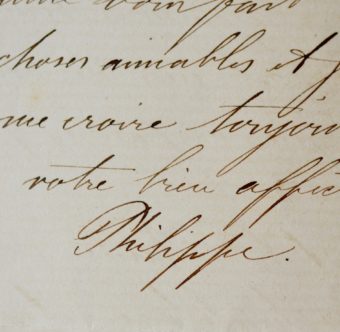 fait
choses aimables et
me croire toujou
votre bien affec
Philippe.